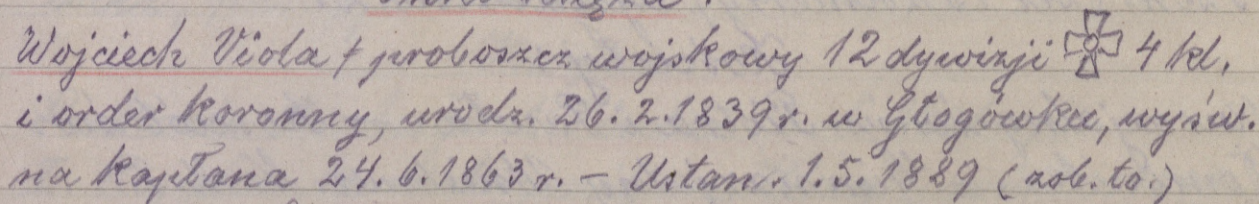 Wojciech Viola † proboszcz wojskowy 12 dywizji 4 kl.
i order koronny, urodz. 26. 2. 1839 r. w Głogówku, wyśw.
na kapłana 24. 6. 1863 r. – Ustan. 1. 5. 1889 (zob. to.)